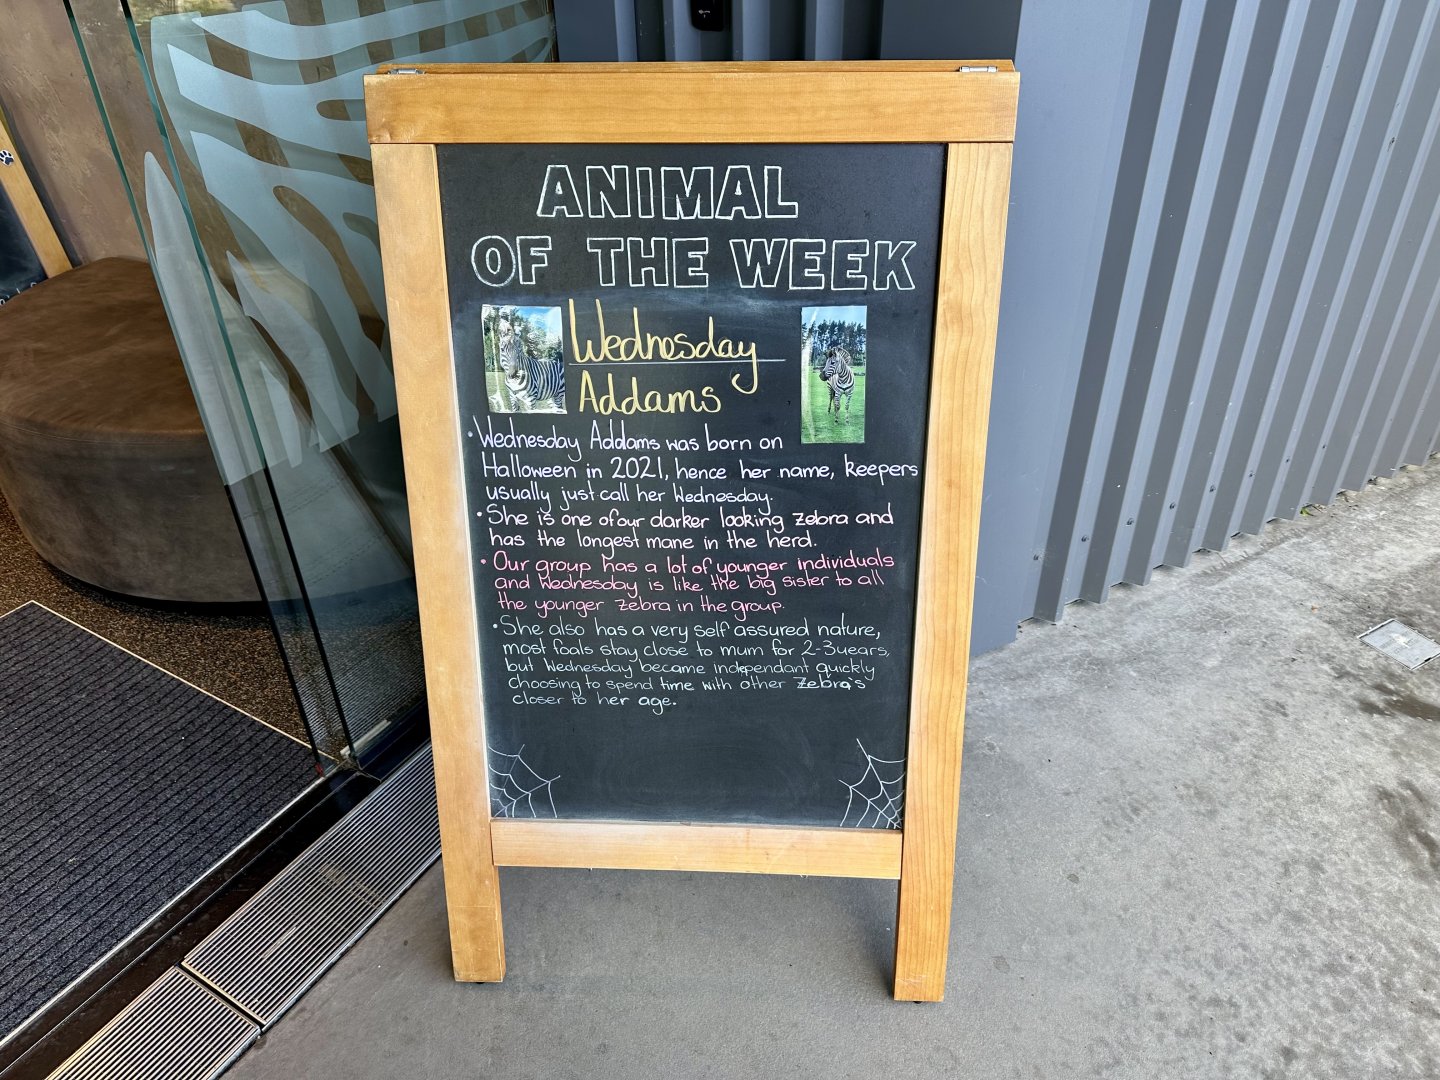 ANIMAL
OF THE WEEK
Wednesday
Addams
• Wednesday Addams was born on
Halloween in 2021, hence her name, keepers
usually just call her Wednesday.
• She is one of our darker looking zebra and
has the longest mane in the herd.
• Our group has a lot of younger individuals
and Wednesday is like the big sister to all
the younger zebra in the group.
• She also has a very self assured nature,
most foals stay close to mum for 2-3years,
but Wednesday became independant quickly
choosing to spend time with other zebra's
closer to her age.